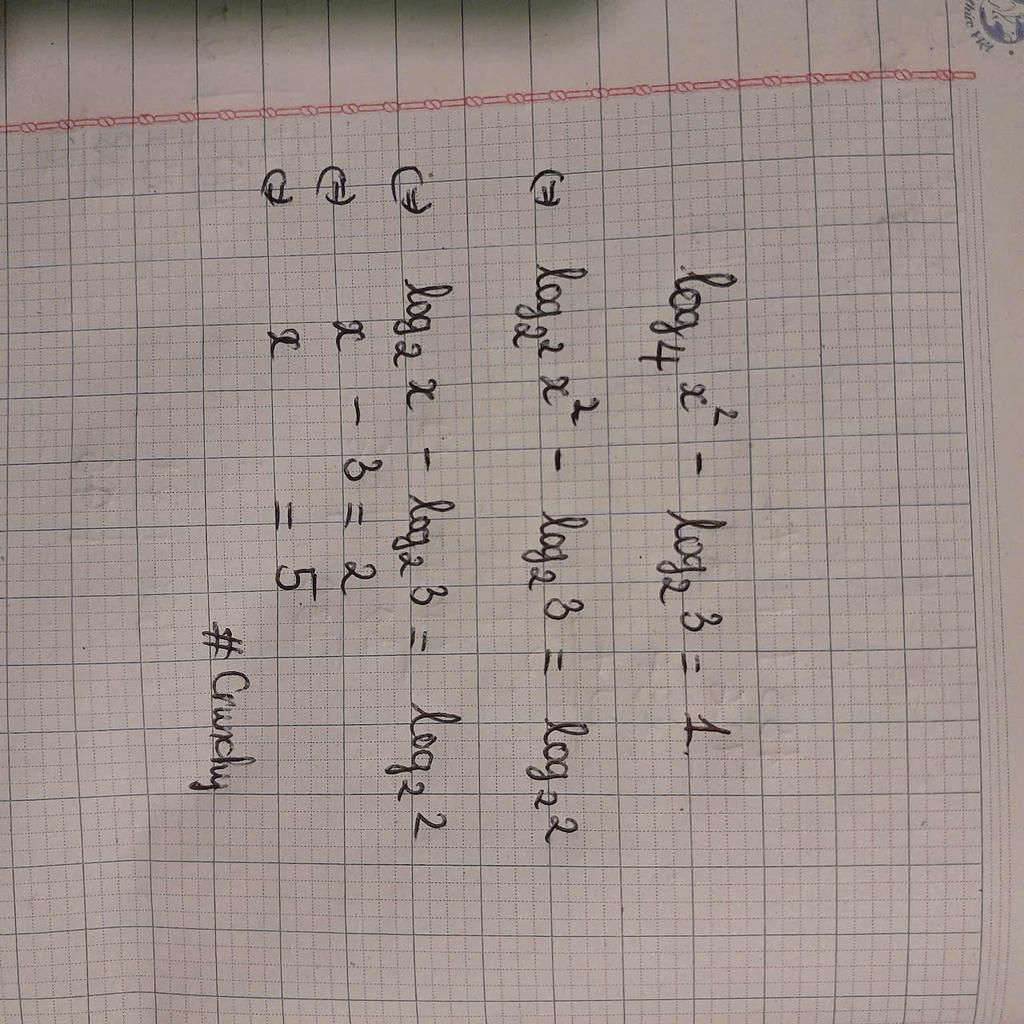 log₄ x² - log₂ 3 = 1
(=) log₂² x² - log₂ 3 = log₂ 2
(=) log₂ x - log₂ 3 = log₂ 2
(=) x - 3 = 2
(=) x = 5
# Crunchy